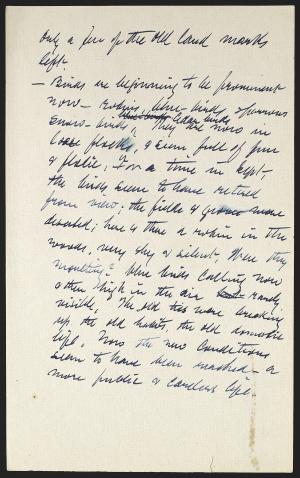 only a few of the old land marks
left.
— Birds are beginning to be prominent
now — Robins, blue-birds, sparrows
snow-birds, cedar birds
They are now in
loose flocks, & seem full of fun
& frolic, For a time in Sept-
the birds seem to have retired
from view; the fields & groves were
deserted; here & there a robin in the
woods, very shy & silent. Were they
moulting? Blue birds calling now
& then high in the air rarely
visible, The old ties were breaking
up, the old habits, the old domestic
life, Now the new conditions
seem to have been reached — a
more public & careless life.